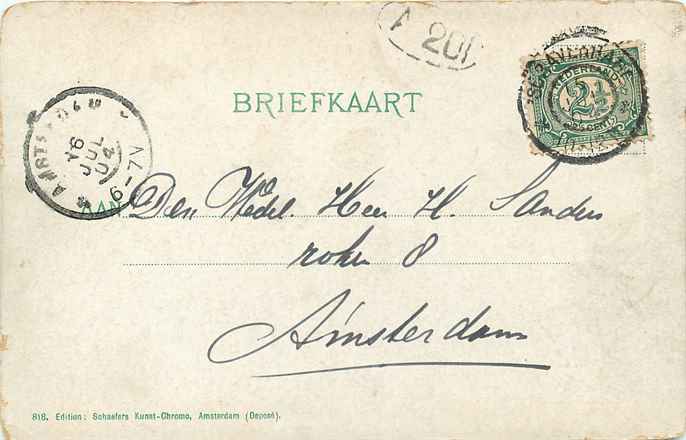 A 201
BRIEFKAART
'S-GRAVENHAGE
NEDERLAND
2½
CENT
16
JUL
04
6-7V
AAN Den Wedel. Heer H. Sanders
rokin 8
Amsterdam
818. Edition: Schaefers Kunst-Chromo, Amsterdam (Deposé).